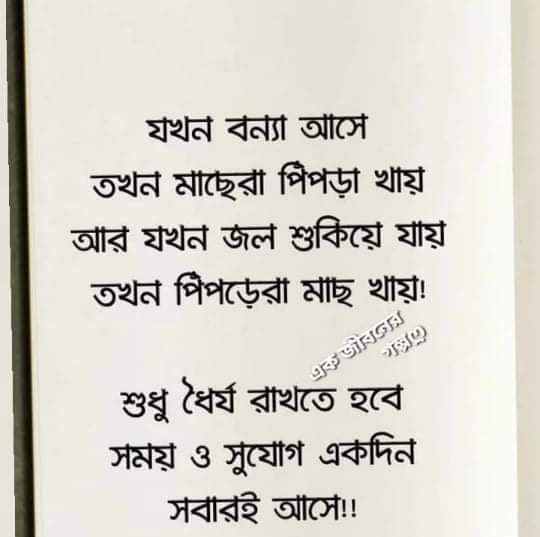 যখন বন্যা আসে
তখন মাছেরা পিঁপড়া খায়
আর যখন জল শুকিয়ে যায়
তখন পিঁপড়েরা মাছ খায়!
এক জীবনের
গল্প
শুধু ধৈর্য রাখতে হবে
সময় ও সুযোগ একদিন
সবারই আসে!!